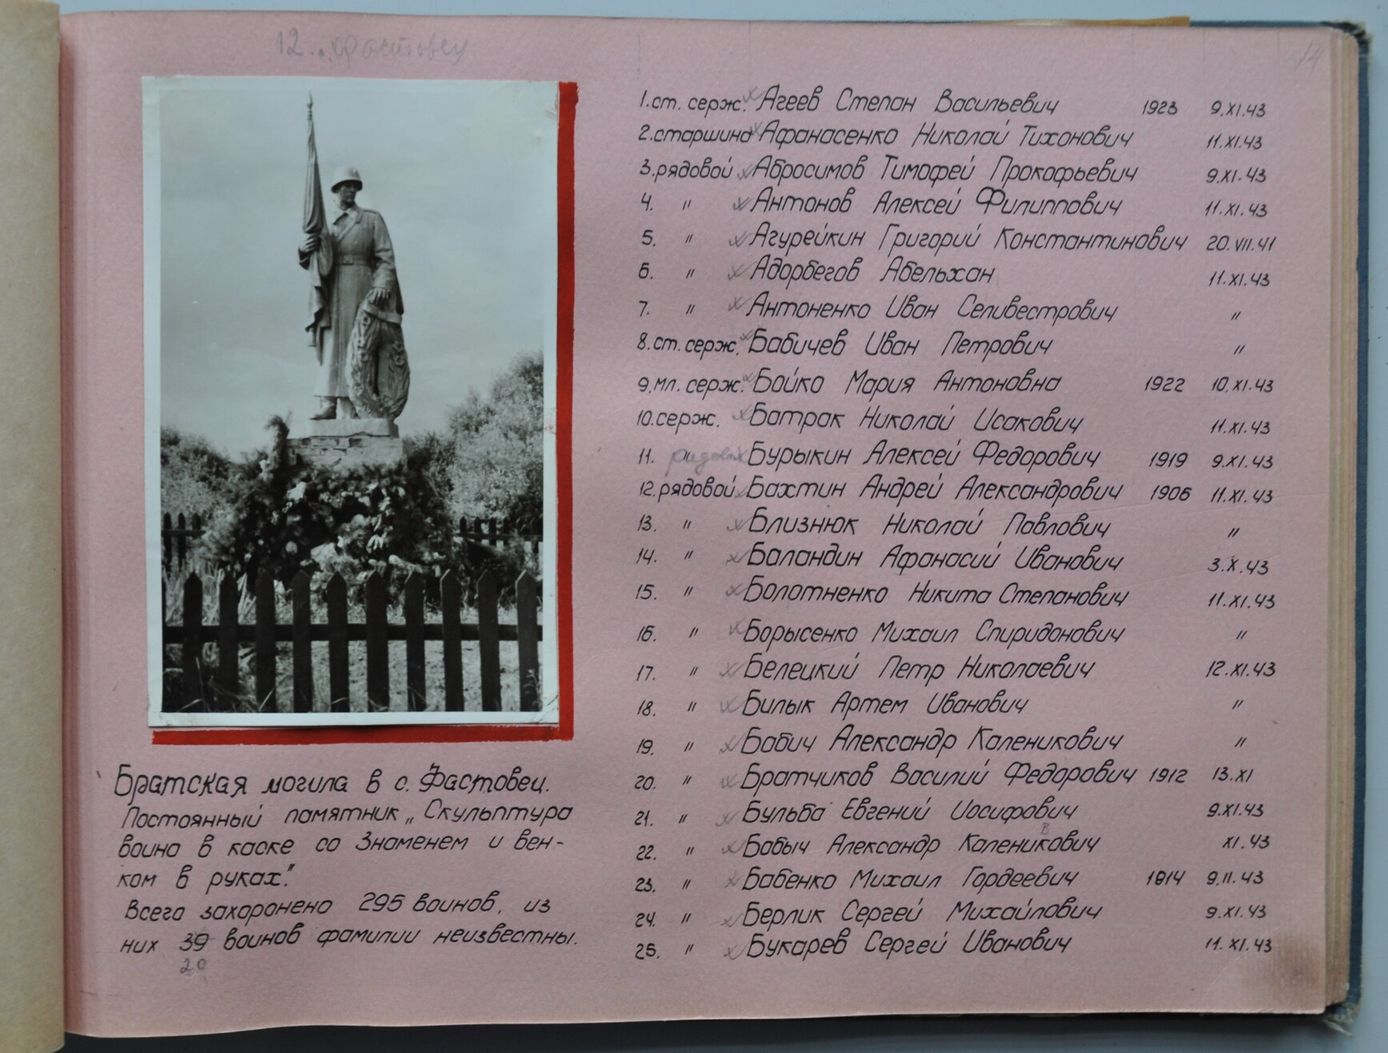 12. с. Фастовец
14
1. ст. серж. Агеев Степан Васильевич 1923 9.XI.43
2. старшина Афанасенко Николай Тихонович 11.XI.43
3. рядовой Абросимов Тимофей Прокофьевич 9.XI.43
4. " Антонов Алексей Филиппович 11.XI.43
5. " Агурейкин Григорий Константинович 20.VII.41
6. " Адорбегов Абельхан 11.XI.43
7. " Антоненко Иван Селивестрович "
8. ст. серж. Бабичев Иван Петрович "
9. мл. серж. Бойко Мария Антоновна 1922 10.XI.43
10. серж. Батрак Николай Исакович 11.XI.43
11. рядовой Бурыкин Алексей Федорович 1919 9.XI.43
12. рядовой Бахтин Андрей Александрович 1906 11.XI.43
13. " Близнюк Николай Павлович "
14. " Баландин Афанасий Иванович 3.X.43
15. " Болотненко Никита Степанович 11.XI.43
16. " Борысенко Михаил Спиридонович "
17. " Белецкий Петр Николаевич 12.XI.43
18. " Билык Артем Иванович "
19. " Бабич Александр Каленикович "
20. " Братчиков Василий Федорович 1912 13.XI
21. " Бульба Евгений Иосифович 9.XI.43
22. " Бабыч Александр Каленикович XI.43
23. " Бабенко Михаил Гордеевич 1914 9.II.43
24. " Берлик Сергей Михайлович 9.XI.43
25. " Букарев Сергей Иванович 11.XI.43
Братская могила в с. Фастовец.
Постоянный памятник „Скульптура
воина в каске со Знаменем и вен-
ком в руках".
Всего захоронено 295 воинов, из
них 39 воинов фамилии неизвестны.
20